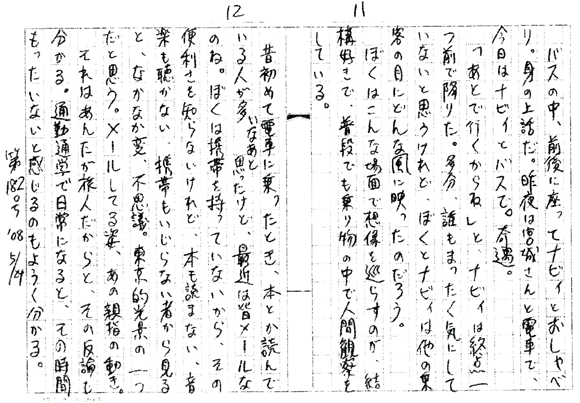 11
バスの中、前後に座ってナビィとおしゃべ
り。身の上話だ。昨夜は宮城さんと電車で、
今日はナビィとバスで。奇遇。
「あとで行くからね」と、ナビィは終点一
つ前で降りた。多分、誰もまったく気にして
いないと思うけれど、ぼくとナビィは他の乗
客の目にどんな風に映ったのだろう。
ぼくはこんな場面で想像を巡らすのが、結
構好きで、普段でも乗り物の中で人間観察を
している。
12
昔初めて電車に乗ったとき、本とか読んで
いる人が多いなあと思ったけど、最近は皆メールな
のね。ぼくは携帯を持っていないから、その
便利さを知らないけれど、本も読まない、音
楽も聴かない、携帯もいじらない者から見る
と、なかなか変、不思議。東京的光景の一つ
だと思う。メールしてる姿、あの親指の動き。
それはあんたが旅人だからと、その反論も
分かる。通勤通学で日常になると、その時間
もったいないと感じるのもようく分かる。
第182号 '08 5/14